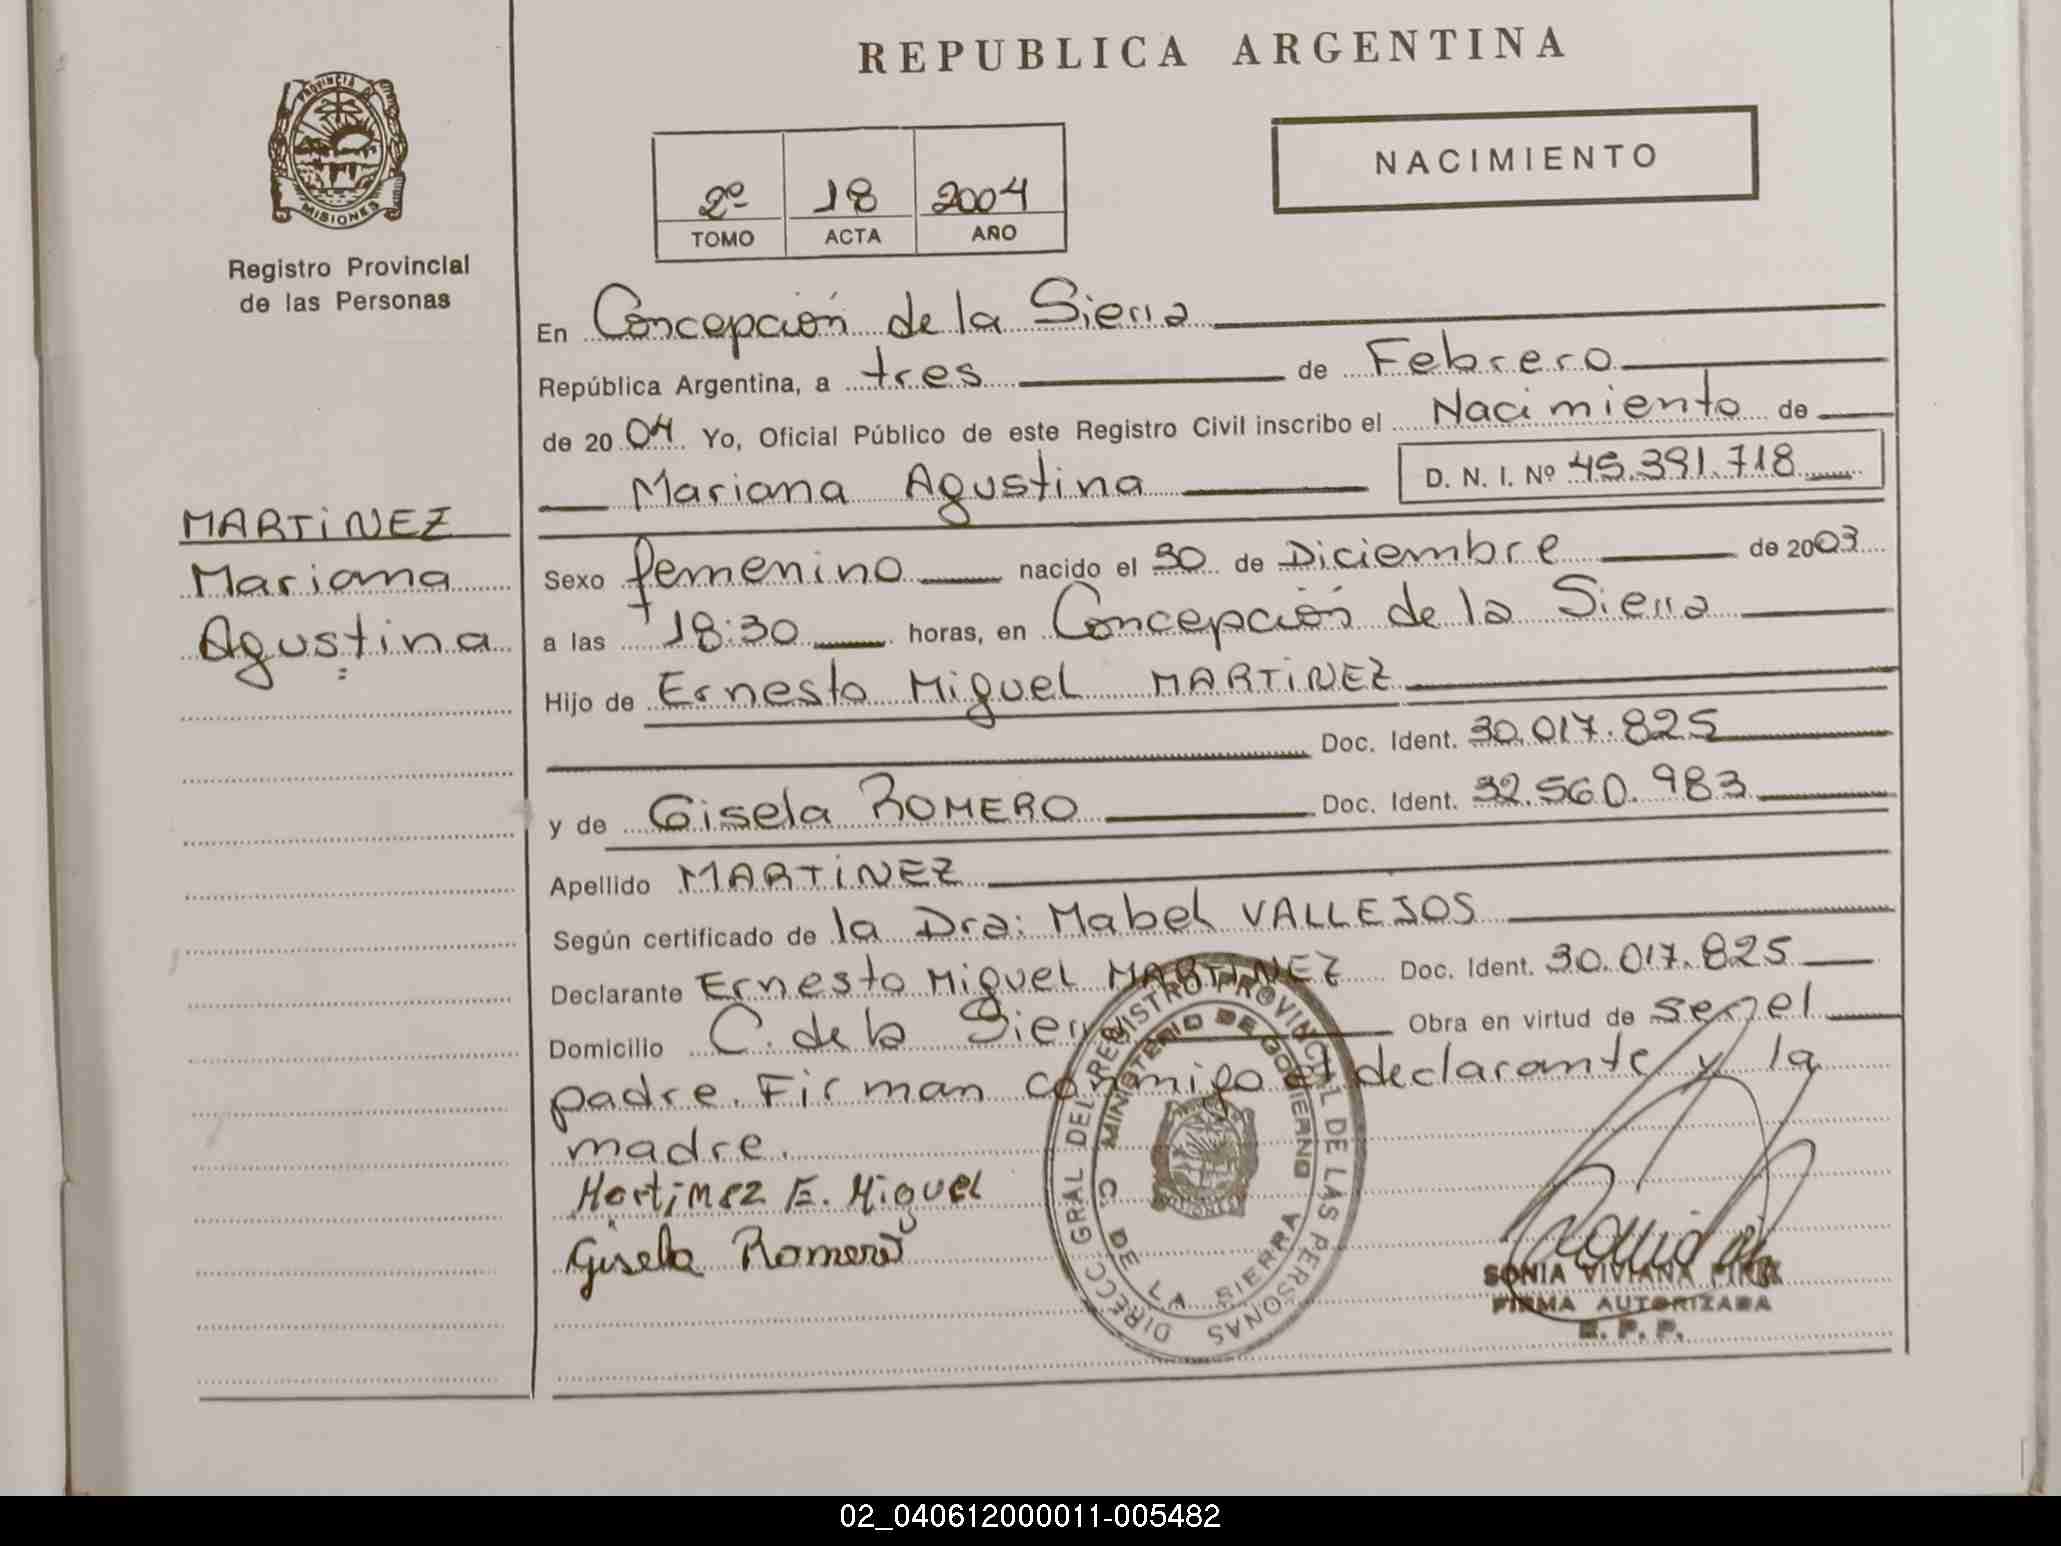 REPUBLICA ARGENTINA
PROVINCIA DE
MISIONES
Registro Provincial
de las Personas
NACIMIENTO
2º 18 2004
TOMO ACTA AÑO
En Concepción de la Sierra
República Argentina, a tres de Febrero
de 2004 Yo, Oficial Público de este Registro Civil inscribo el Nacimiento de
Mariana Agustina D. N. I. Nº 45.391.718
MARTINEZ
Mariana
Agustina
Sexo femenino nacido el 30 de Diciembre de 2003
a las 18:30 horas, en Concepción de la Sierra
Hijo de Ernesto Miguel MARTINEZ
Doc. Ident. 30.017.825
y de Gisela ROMERO Doc. Ident. 32.560.983
Apellido MARTINEZ
Según certificado de la Dra: Mabel VALLEJOS
Declarante Ernesto Miguel MARTINEZ Doc. Ident. 30.017.825
Domicilio C. de la Sierra Obra en virtud de ser el
padre. Firman conmigo el declarante y la
madre.
Martinez E. Miguel
Gisela Romero
DIRECC. GRAL DEL REGISTRO PROVINCIAL DE LAS PERSONAS
MINISTERIO DE GOBIERNO
C. DE LA SIERRA
SONIA VIVIANA
FIRMA AUTORIZADA
R. P. P.
02_040612000011-005482